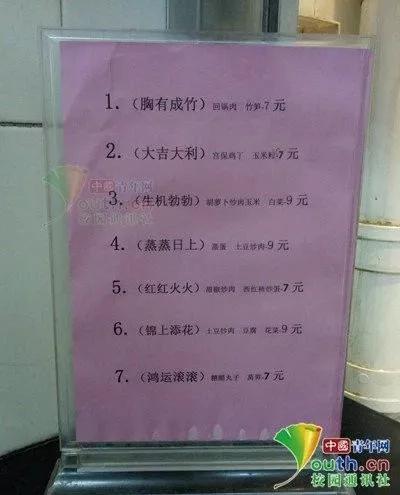 1.（胸有成竹）回锅肉 竹笋-7 元
2.（大吉大利）宫保鸡丁 玉米粒-7 元
3.（生机勃勃）胡萝卜炒肉玉米 白菜-9 元
4.（蒸蒸日上）蒸蛋 土豆炒肉-9 元
5.（红红火火）胡椒炒肉 西红柿炒蛋-7 元
6.（锦上添花）土豆炒肉 豆腐 花菜-9 元
7.（鸿运滚滚）糖醋丸子 莴笋-7 元
中國青年网
outh.cn
校园通讯社
中國青年网
Youth.cn
校园通讯社